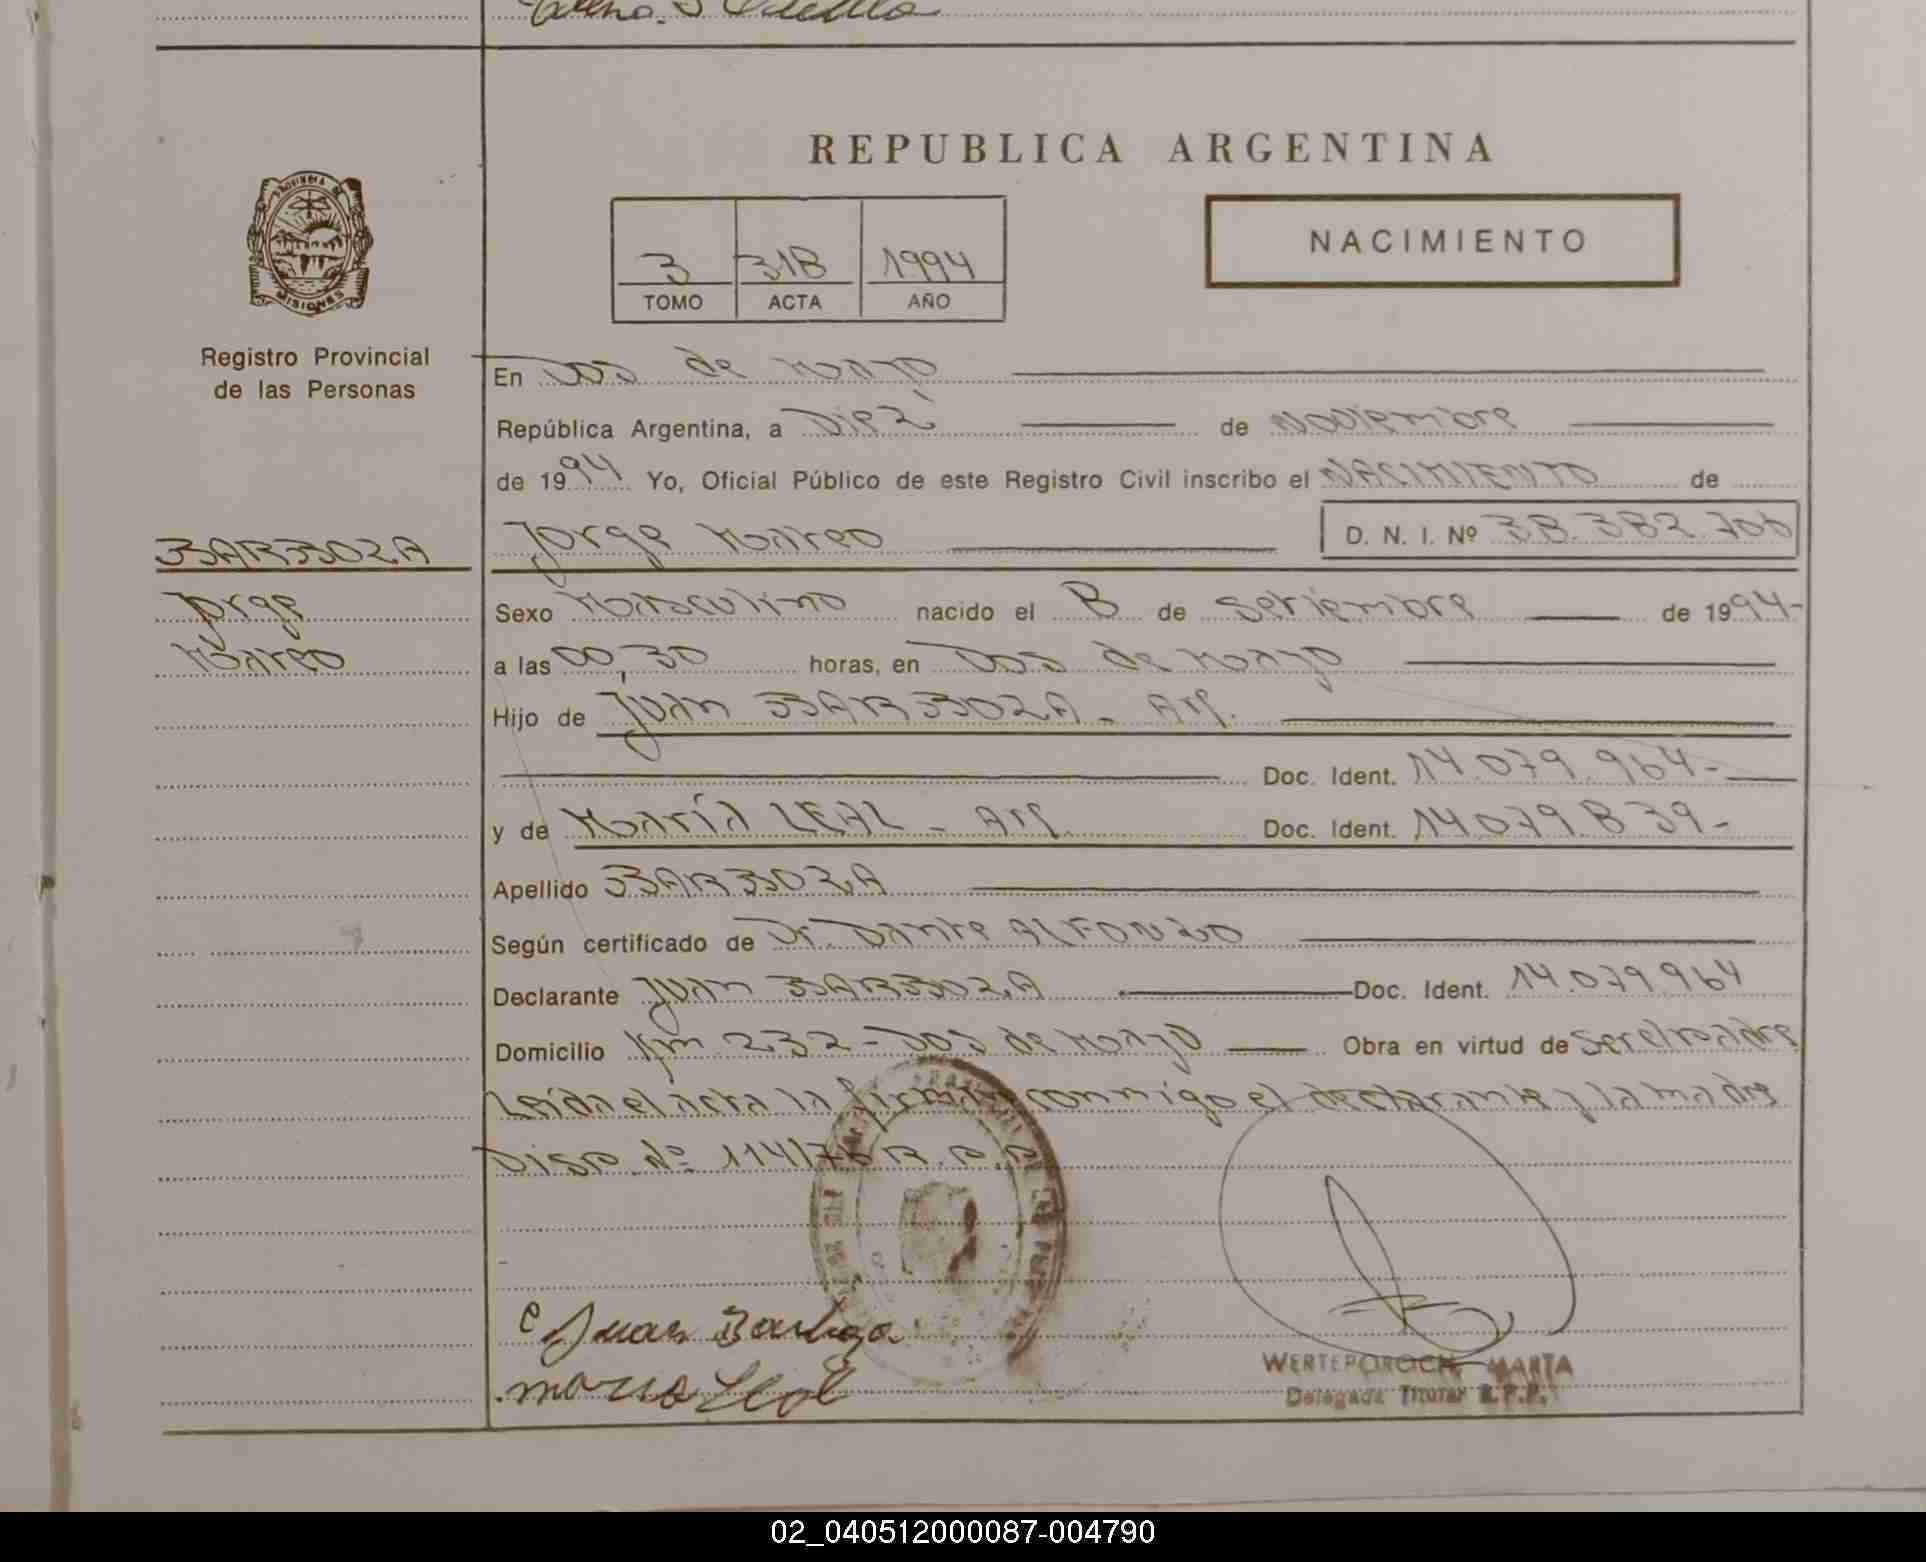 REPUBLICA ARGENTINA
PROVINCIA DE
MISIONES
Registro Provincial
de las Personas
3 318 1994
TOMO ACTA AÑO
NACIMIENTO
En Dos de Mayo
República Argentina, a Diez de Noviembre
de 1994 Yo, Oficial Público de este Registro Civil inscribo el NACIMIENTO de
BARBOZA
Jorge
Mateo
Jorge Mateo D. N. I. Nº 38.382.706
Sexo Masculino nacido el 8 de Setiembre de 1994-
a las 00,30 horas, en Dos de Mayo
Hijo de Juan BARBOZA - Arg.
Doc. Ident. 14.079.964-
y de María LEAL - Arg Doc. Ident. 14.079.839-
Apellido BARBOZA
Según certificado de Dr. Dante ALFONZO
Declarante Juan BARBOZA Doc. Ident. 14.079.964
Domicilio Km 232 - Dos de Mayo Obra en virtud de ser el padre
Leída el acta la firman conmigo el declarante y la madre
Disp. Nº 114/76 R.P.P.
Juan Barboza
maria Leal
WERTEPOROCH, MARTA
Delegada Titular R.P.P.
02_040512000087-004790